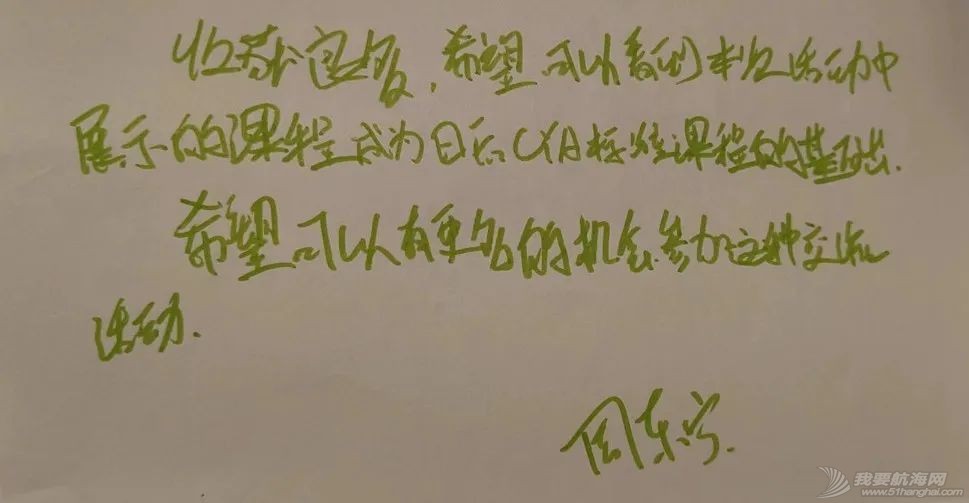 收获颇多,希望可以看到本次活动中
展示的课程成为日后CYA标准课程的基础.
希望可以有更多的机会参加这种交流
活动.
周东宁.
我要航海网
www.51hanghai.com